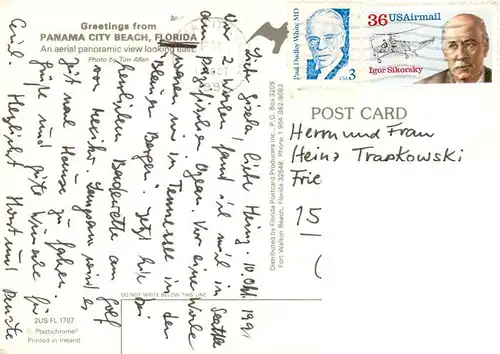 Greetings from
PANAMA CITY BEACH, FLORIDA
An aerial panoramic view looking east.
Photo by Tim Allen
Liebe Gisela, lieber Heinz. 10. Okt. 1991
Vor 2 Wochen sind wir in Seattle
am pazifischen Ozean. Vor einer Woche
waren wir in Tennessee in den
"Blauen Bergen". Jetzt bei
herrlichem Badewetter am Golf
von Mexiko. Langsam wird es
Zeit nach Hause zu fahren.
Grüße und gute Wünsche für
Euch. Herzlichst Horst und
DO NOT WRITE BELOW THIS LINE
2US FL 1707
© Plastichrome®
Printed in Ireland
Distributed by Florida Postcard Producers Inc., P.O. Box 3209
Fort Walton Beach, Florida 32548. Phone 1 904-362-8083
Paul Dudley White MD
USA 3
36 USAirmail
Igor Sikorsky
POST CARD
Herrn und Frau
Heinz Trapkowski
Frie
15